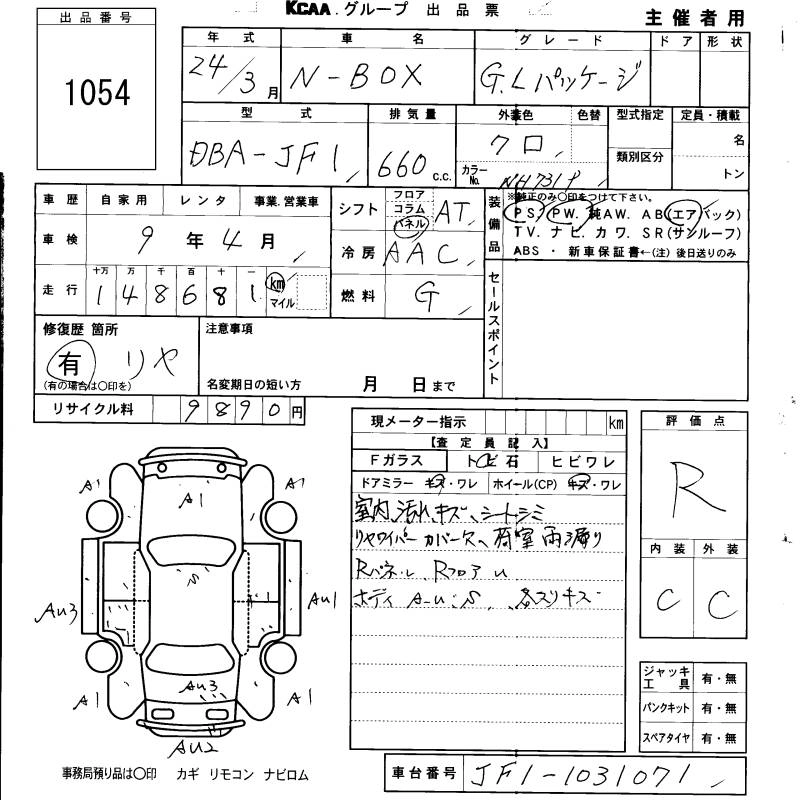 KCAA グループ 出品票
主催者用
出品番号
1054
年式 車名 グレード ドア 形状
24/3月 N-BOX G.Lパッケージ
型式 排気量 外装色 色替 型式指定 定員・積載
DBA-JF1 660 c.c. クロ 類別区分 名
カラーNo. NH731P トン
車歴 自家用 レンタ 事業.営業車
シフト フロア コラム パネル AT
装備品 ※純正のみ○印をつけて下さい。
PS. PW. 純AW. AB(エアバック)
TV. ナビ. カワ. SR(サンルーフ)
ABS ・ 新車保証書←(注) 後日送りのみ
車検 9年4月
冷房 AAC
走行 十万 万 千 百 十 一
148681 km マイル
燃料 G
セールスポイント
修復歴 箇所 注意事項
有 リヤ
(有の場合は○印を) 名変期日の短い方 月 日まで
リサイクル料 9890円
現メーター指示 km
【査定員記入】
Fガラス トビ石 ヒビワレ
ドアミラー キズ・ワレ ホイール(CP) キズ・ワレ
室内汚れ、キズ、シートシミ
リヤワイパーカバー欠、荷室雨漏り
Rパネル、Rフロア U
ボディ A.U.S, 各スリキズ
評価点
R
内装 外装
C C
A1 A1 A1
S
Au3 Au1
Au3
A1 A1
Au2
ジャッキ工具 有・無
パンクキット 有・無
スペアタイヤ 有・無
事務局預り品は○印 カギ リモコン ナビロム
車台番号 JF1-1031071